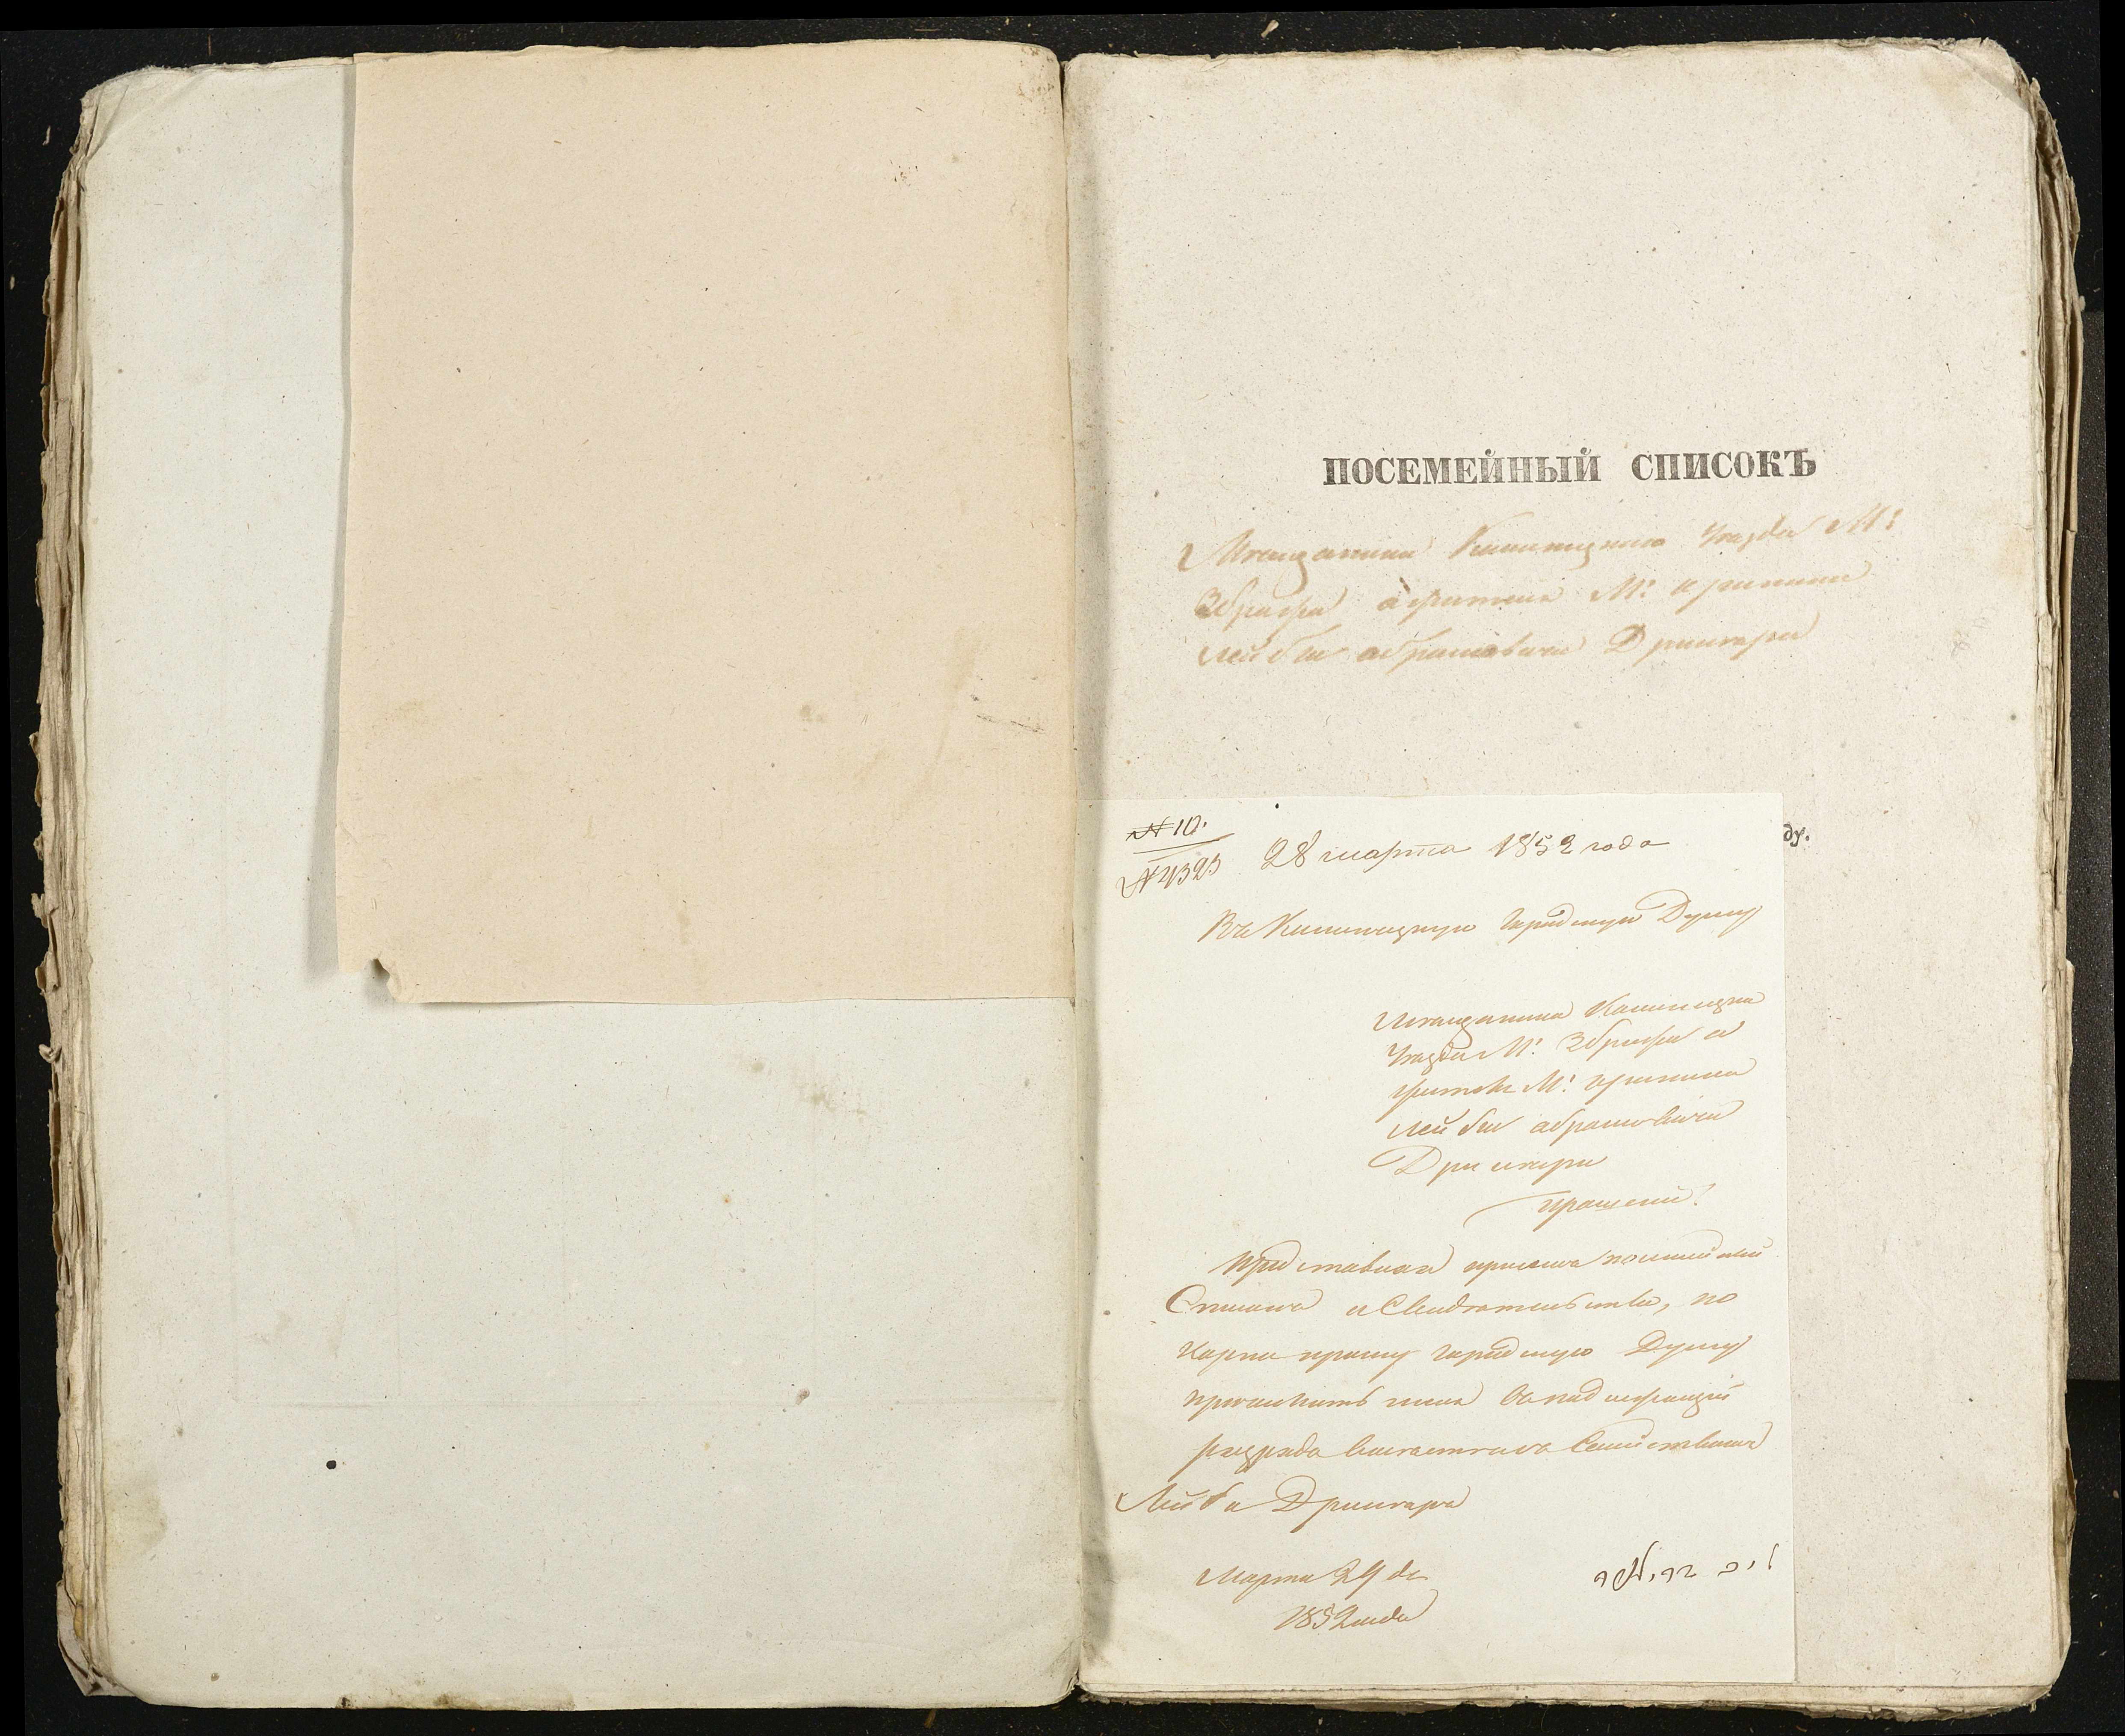 ПОСЕМЕЙНЫЙ СПИСОКЪ
Мещанина Каменецкаго Уезда М:
Збрижа а жителя М:
Лейбы Абрамовича Дримера
ду.
№ 10.
№ 4325 28 марта 1852 года
Въ Каменецкую Городскую Думу
Мещанина Каменецка
Уезда М: Збрижа а
жителя М:
Лейбы Абрамовича
Дримера
Прошение
Представляя присемъ посемейный
Списокъ и Свидетельства, по
коему прошу городскую Думу
причислить меня въ надлежащий
разрядъ вместе съ Семействомъ
Лейба Дримеръ
Марта 29 дн
1852 года